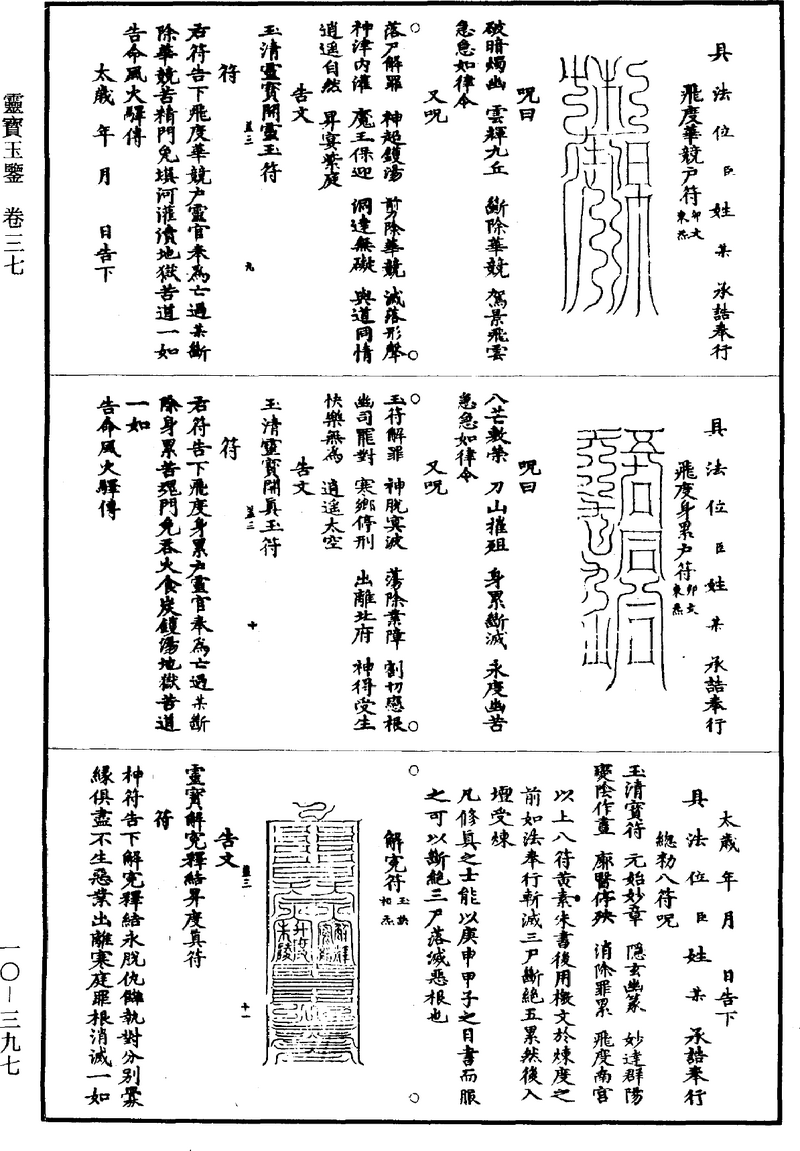 靈寶玉鑒 卷三七
一〇—三九七
具法位臣姓某承誥奉行
飛度華競戶符 卯文東炁
呪曰
破暗燭幽 雲輝九丘 斷除華競 駕景飛雲
急急如律令
又呪
落尸解罪 神超鑊湯 剪除華競 滅落形聲
神津內灌 魔王保迎 洞達無礙 與道同情
逍遥自然 昇宴紫庭
告文
玉清靈寶開靈玉符
蓋三 九
符
右符告下飛度華競戶靈官奉為亡過某斷
除華競苦精門免填河灌瀆地獄苦道一如
告命風火驛傳
太歲 年 月 日告下
具法位臣姓某承誥奉行
飛度身累戶符 卯文東炁
呪曰
八芒敷榮 刀山摧殂 身累斷滅 永度幽苦
急急如律令
又呪
玉符解罪 神脫冥波 蕩除業障 割切惡根
幽司罷對 寒鄉停刑 出離北府 神得受生
快樂無為 逍遥太空
告文
玉清靈寶開真玉符
蓋三 十
符
右符告下飛度身累戶靈官奉為亡過某斷
除身累苦魂門免吞火食炭鑊湯地獄苦道
一如
告命風火驛傳
太歲 年 月 日告下
具法位臣姓某承誥奉行
總勑八符呪
玉清寶符 元始妙章 隱玄幽篆 妙達群陽
變陰作晝 廓翳停殃 消除罪累 飛度南宮
以上八符黃素朱書後用檄文於煉度之
前如法奉行斬滅三尸斷絕五累然後入
壇受煉
凡修真之士能以庚申甲子之日書而服
之可以斷絕三尸落滅惡根也
解冤符
告文
蓋三 十一
靈寶解冤釋結昇度真符
符
神符告下解冤釋結永脫仇讎執對分別釁
緣俱盡不生惡業出離寒庭罪根消滅一如